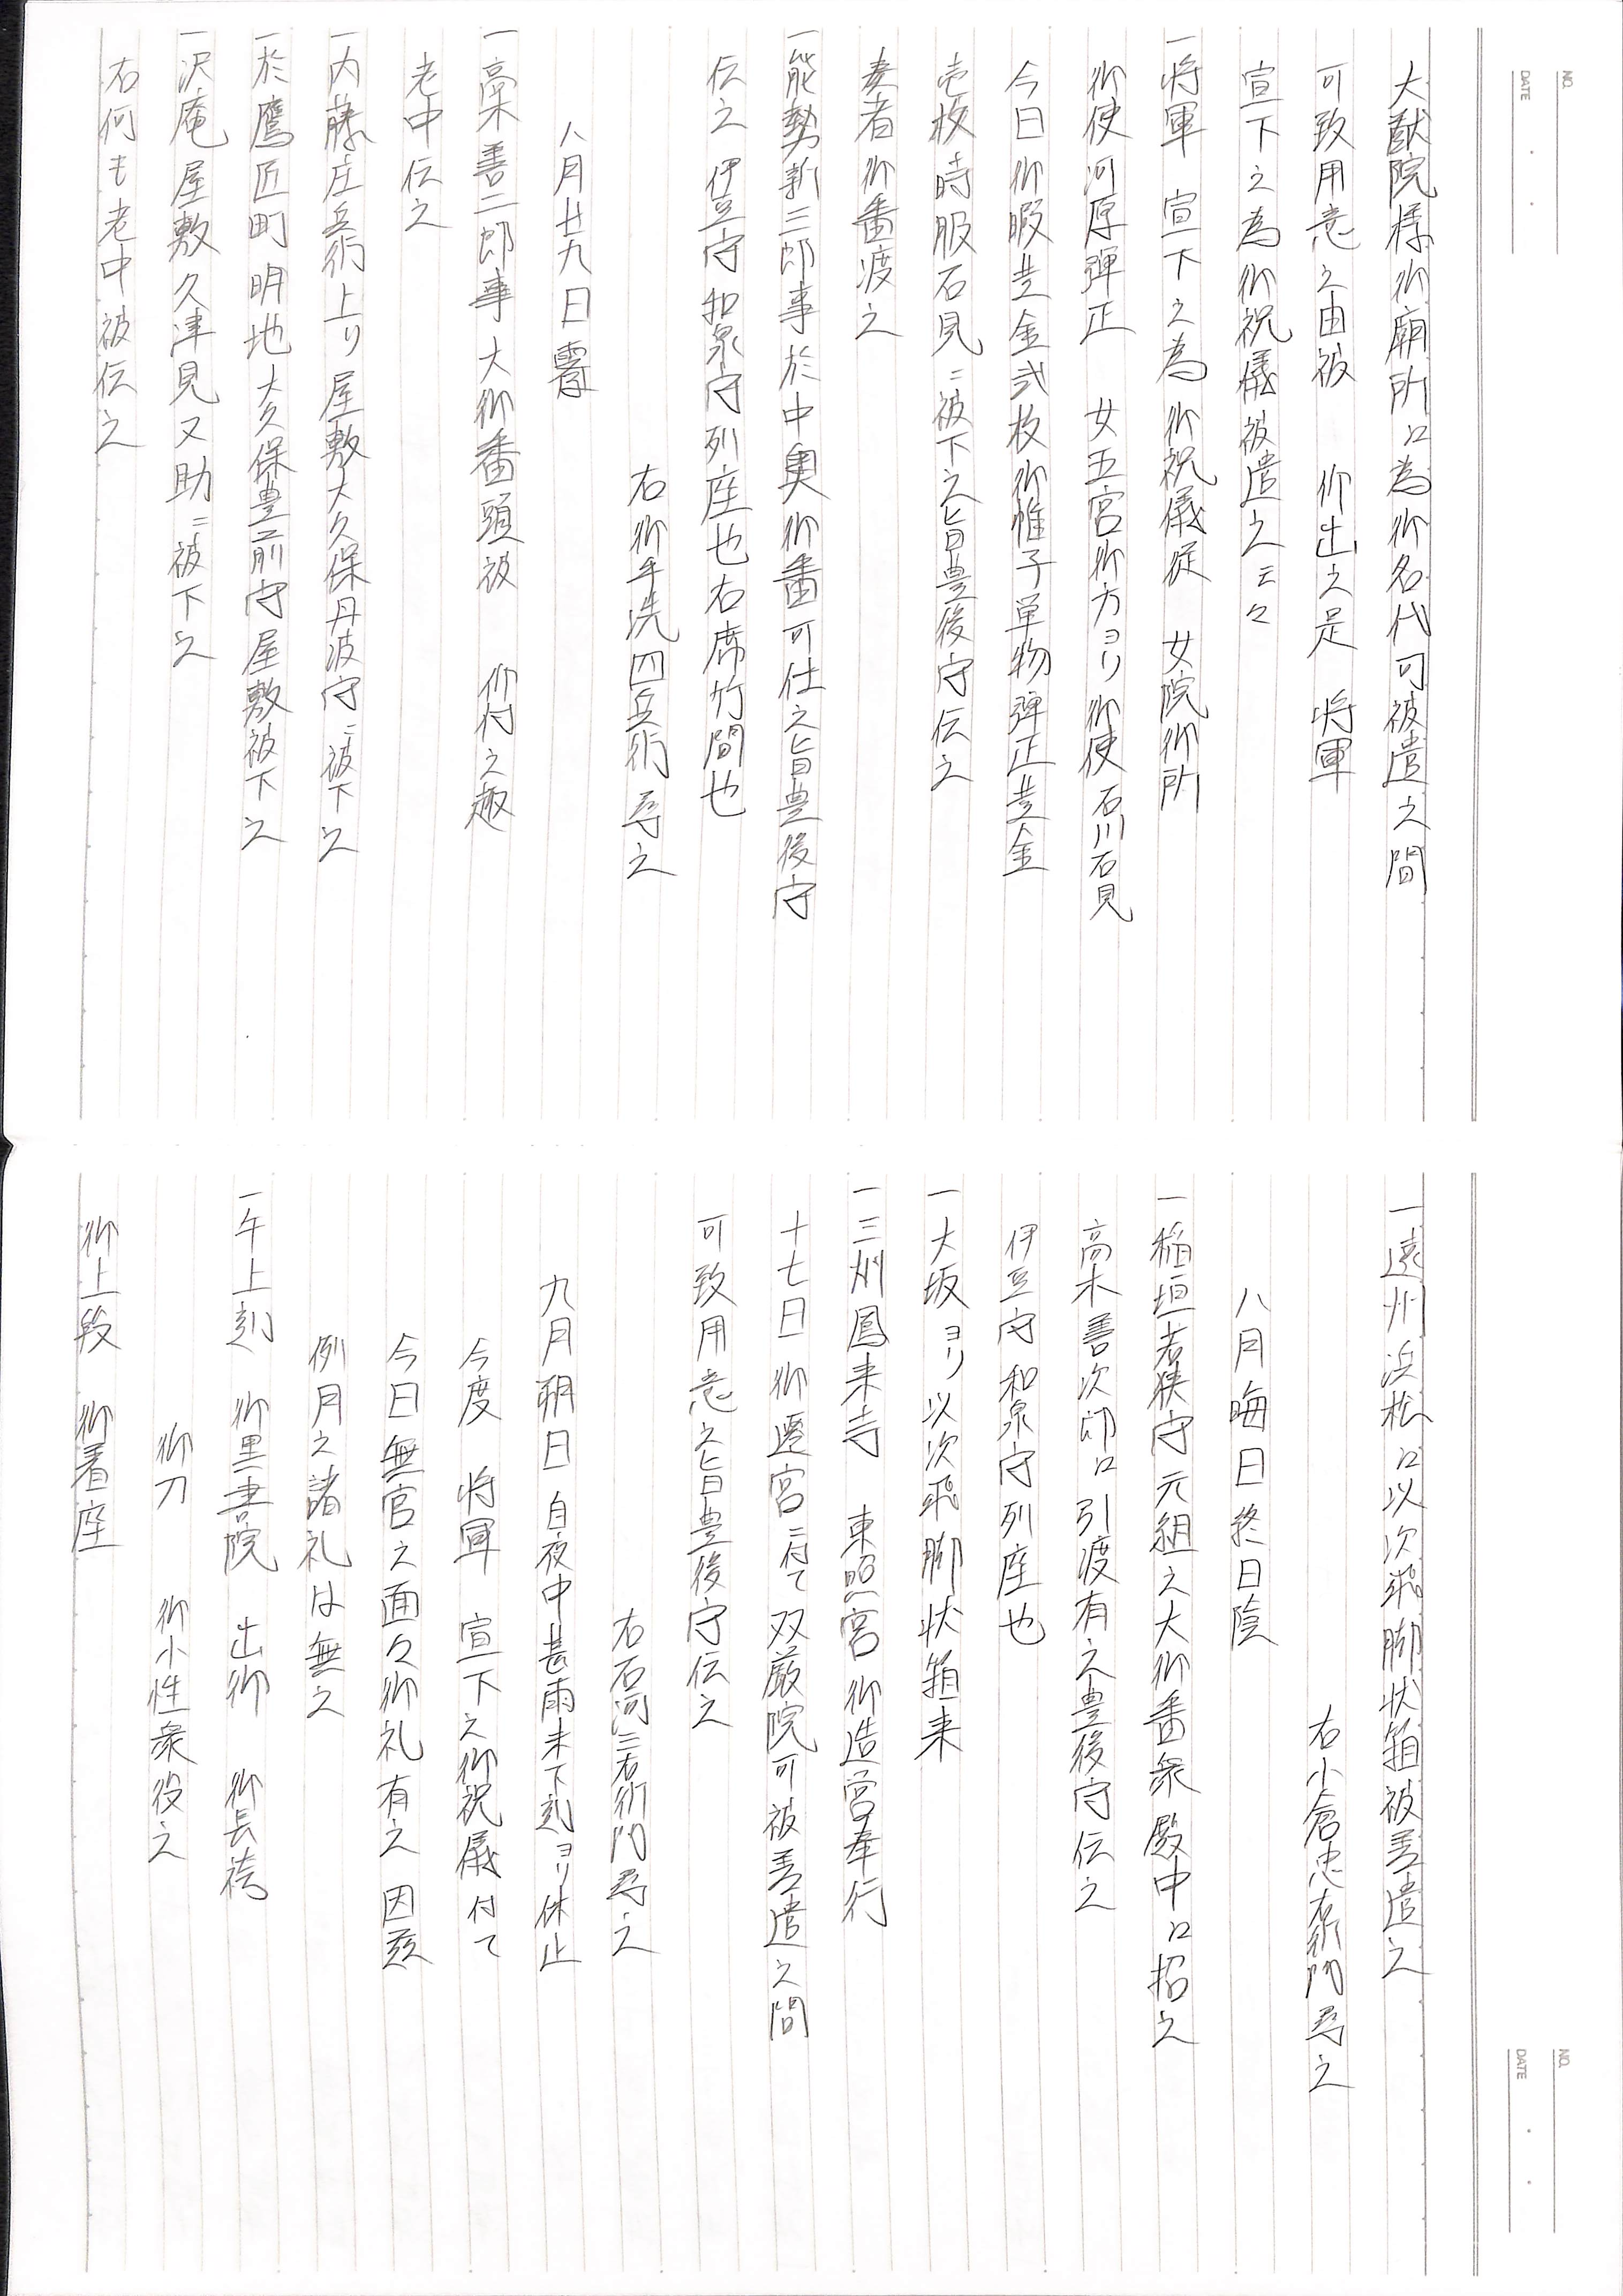 大猷院様御廟所江為御名代可被遣之間
可致用意之由被 仰出之是 将軍
宣下之為御祝儀被遣之云々
一将軍 宣下之為御祝儀従 女院御所
御使河原弾正 女五宮御方ヨリ御使石川石見
今日御暇豊金弐枚御帷子単物弾正豊金
壱枚時服石見ニ被下之旨豊後守伝之
奏者御番渡之
一能勢新三郎事於中奥御番可仕之旨豊後守
伝之 伊豆守和泉守列座也右席竹間也
右御手洗四兵衛尋之
八月廿九日霽
一高木善二郎事大御番頭被 仰付之趣
老中伝之
一内藤庄兵衛上リ屋敷大久保丹波守ニ被下之
一於鷹匠町明地大久保豊前守屋敷被下之
一沢庵屋敷久津見又助ニ被下之
右何も老中被伝之
一遠州浜松江以次飛脚状箱被差遣之
右小倉忠右衛門尋之
八月晦日終日陰
一稲垣若狭守元組之大御番衆殿中江招之
高木善次郎江引渡有之豊後守伝之
伊豆守和泉守列座也
一大坂ヨリ以次飛脚状箱来
一三州鳳来寺 東照宮御造営奉行
十七日御遷宮ニ付て双厳院可被差遣之間
可致用意之旨豊後守伝之
右石河三右衛門尋之
九月朔日自夜中甚雨未下刻ヨリ休止
今度 将軍 宣下之御祝儀付て
今日無官之面々御礼有之 因茲
例月之諸礼は無之
一午上刻 御黒書院 出御 御長袴
御刀 御小性衆役之
御上段 御着座
NO.
DATE
NO.
DATE